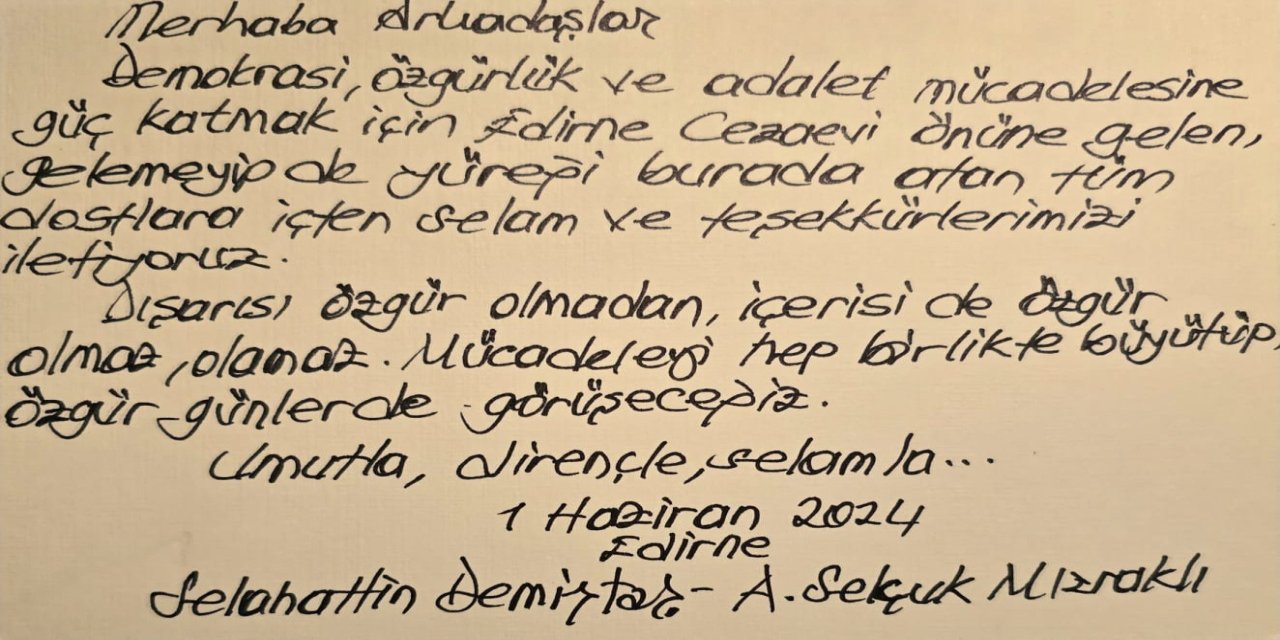 Merhaba Arkadaşlar
Demokrasi, özgürlük ve adalet mücadelesine
güç katmak için Edirne Cezaevi önüne gelen,
gelemeyip de yüreği burada atan tüm
dostlara içten selam ve teşekkürlerimizi
iletiyoruz.
Dışarısı özgür olmadan, içerisi de özgür
olmaz, olamaz. Mücadeleyi hep birlikte büyütüp,
özgür günlerde görüşeceğiz.
Umutla, dirençle, selamla...
1 Haziran 2024
Edirne
Selahattin Demirtaş - A. Selçuk Mızraklı